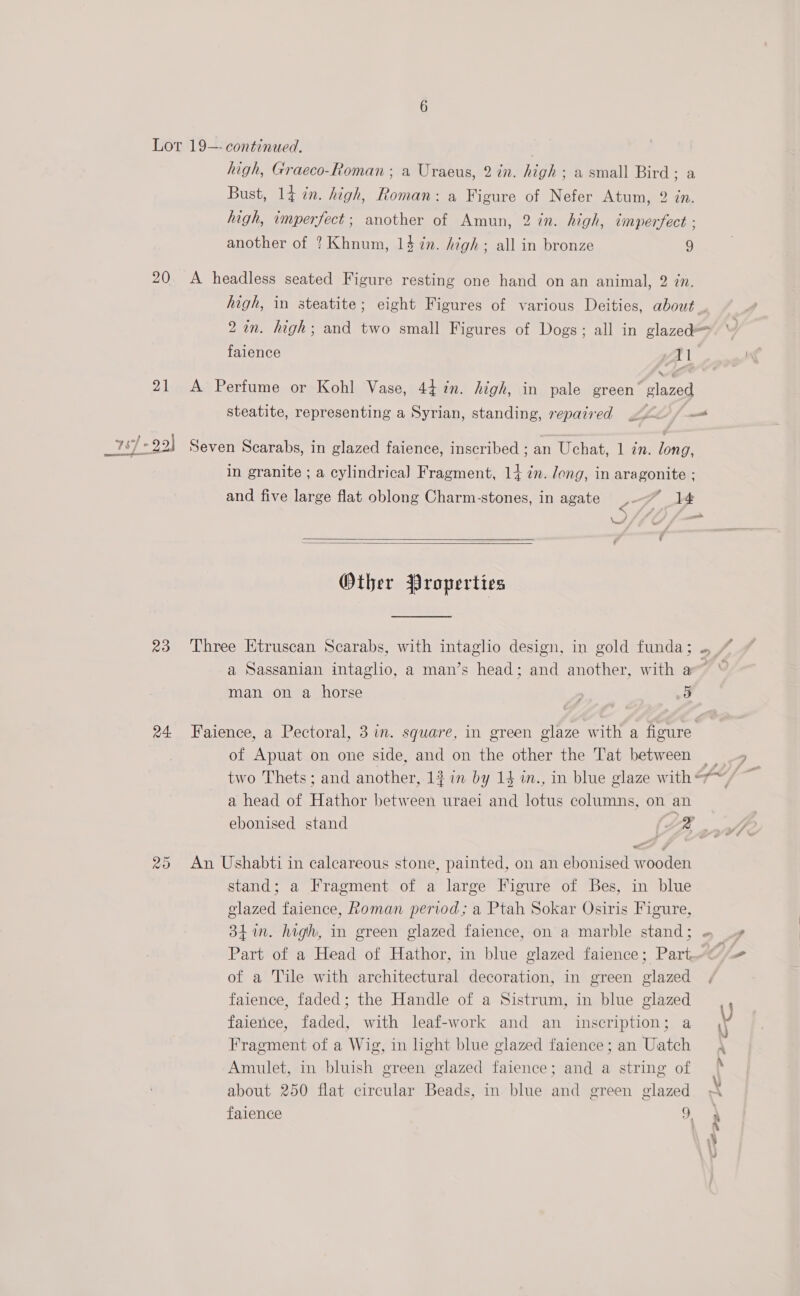 6
Lot 19—continued.
high, Graeco-Roman; a Uraeus, 2 in. high; a small Bird; a
Bust, 1¼ in. high, Roman: a Figure of Nefer Atum, 2 in.
high, imperfect; another of Amun, 2 in. high, imperfect;
another of ? Khnum, 1½ in. high; all in bronze 9
20 A headless seated Figure resting one hand on an animal, 2 in.
high, in steatite; eight Figures of various Deities, about
2 in. high; and two small Figures of Dogs; all in glazed
faience 11
21 A Perfume or Kohl Vase, 4¼ in. high, in pale green glazed
steatite, representing a Syrian, standing, repaired
22 Seven Scarabs, in glazed faience, inscribed; an Uchat, 1 in. long,
in granite; a cylindrical Fragment, 1¼ in. long, in aragonite;
and five large flat oblong Charm-stones, in agate 14
Other Properties
23 Three Etruscan Scarabs, with intaglio design, in gold funda;
a Sassanian intaglio, a man's head; and another, with a
man on a horse 5
24 Faience, a Pectoral, 3 in. square, in green glaze with a figure
of Apuat on one side, and on the other the Tat between
two Thets; and another, 1¾ in by 1½ in., in blue glaze with
a head of Hathor between uraei and lotus columns, on an
ebonised stand 2
25 An Ushabti in calcareous stone, painted, on an ebonised wooden
stand; a Fragment of a large Figure of Bes, in blue
glazed faience, Roman period; a Ptah Sokar Osiris Figure,
3¼ in. high, in green glazed faience, on a marble stand;
Part of a Head of Hathor, in blue glazed faience; Part
of a Tile with architectural decoration, in green glazed
faience, faded; the Handle of a Sistrum, in blue glazed
faience, faded, with leaf-work and an inscription; a
Fragment of a Wig, in light blue glazed faience; an Uatch
Amulet, in bluish green glazed faience; and a string of
about 250 flat circular Beads, in blue and green glazed
faience 9